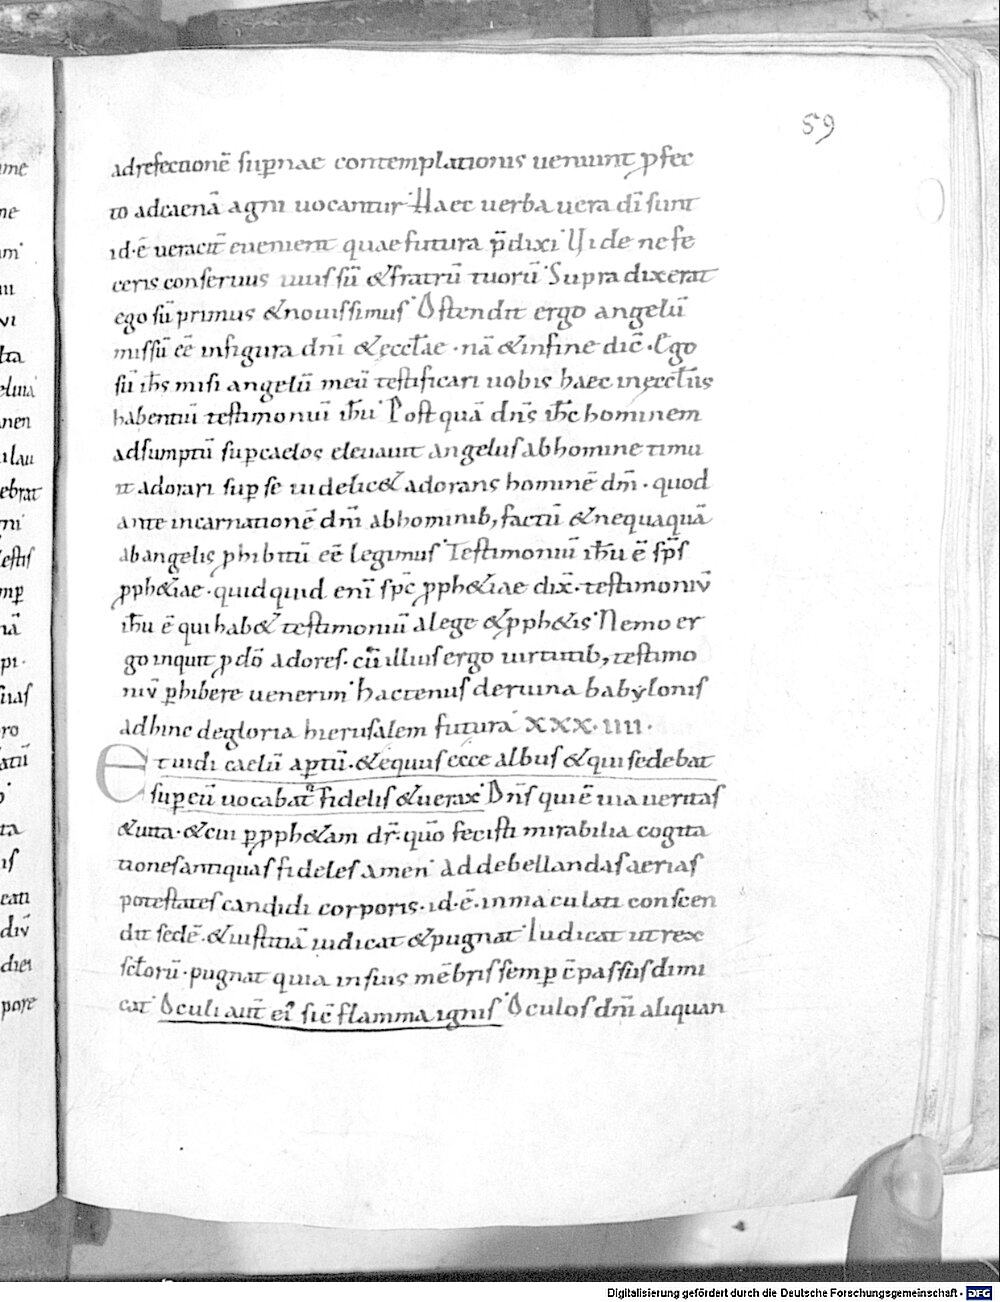 59
adrefectionē sup̄nae contemplationis ueniunt ꝓfec
to adcaenā agni uocantur Haec uerba uera dī sunt
id·ē ueracit̄ euenient quae futura p̄dixi Uide ne fe
ceris conseruus tuus sū &fratrū tuorū Supra dixerat
ego sū primus &nouissimus Ostendit ergo angelū
missū eē infigura dnī &eccl̄ae · nā &infine dic̄ · Ego
sū ih̄s misi angelū meū testificari uobis haec ineccl̄iis
habentiū testimoniū ih̄u Postquā dn̄s ih̄c hominem
adsumptū sup̄caelos eleuauit angelus abhomine timu
it adorari sup̄ se uidelic& adorans hominē dn̄m · quod
ante incarnationē dn̄i abhominib; factū &nequaquā
abangelis ꝓhibitū eē legimus Testimoniū ih̄u ē sp̄s
ꝓph&iae · quidquid enī sp̄c ꝓph&iae dix̄ · testimoniū
ih̄u ē qui hab& testimoniū alege &ꝓph&is Nemo er
go inquit ꝓ dō adores · cū illius ergo uirtutib; testimo
niū ꝓhibere uenerim hactenus deruina babylonis
adhinc degloria hierusalem futura XXX·IIII·
Et uidi caelū ap̄tū · &equus ecce albus &qui sedebat
sup̄ eū uocabat̄ fidelis &uerax Dn̄s qui ē uia ueritas
&uita · &cui ꝑ ꝓph&am dr̄ · quō fecisti mirabilia cogita
tiones antiquas fideles amen Addebellandas aerias
potestates candidi corporis · id·ē · inmaculati conscen
dit sedē · &iustitiā iudicat &pugnat Iudicat ut rex
sc̄torū · pugnat quia insuis mēbris semp̄ c̄passus dimi
cat Oculi aut̄ eı᾽ sic̄ flamma ignis Oculos dn̄i aliquan
Digitalisierung gefördert durch die Deutsche Forschungsgemeinschaft - DFG